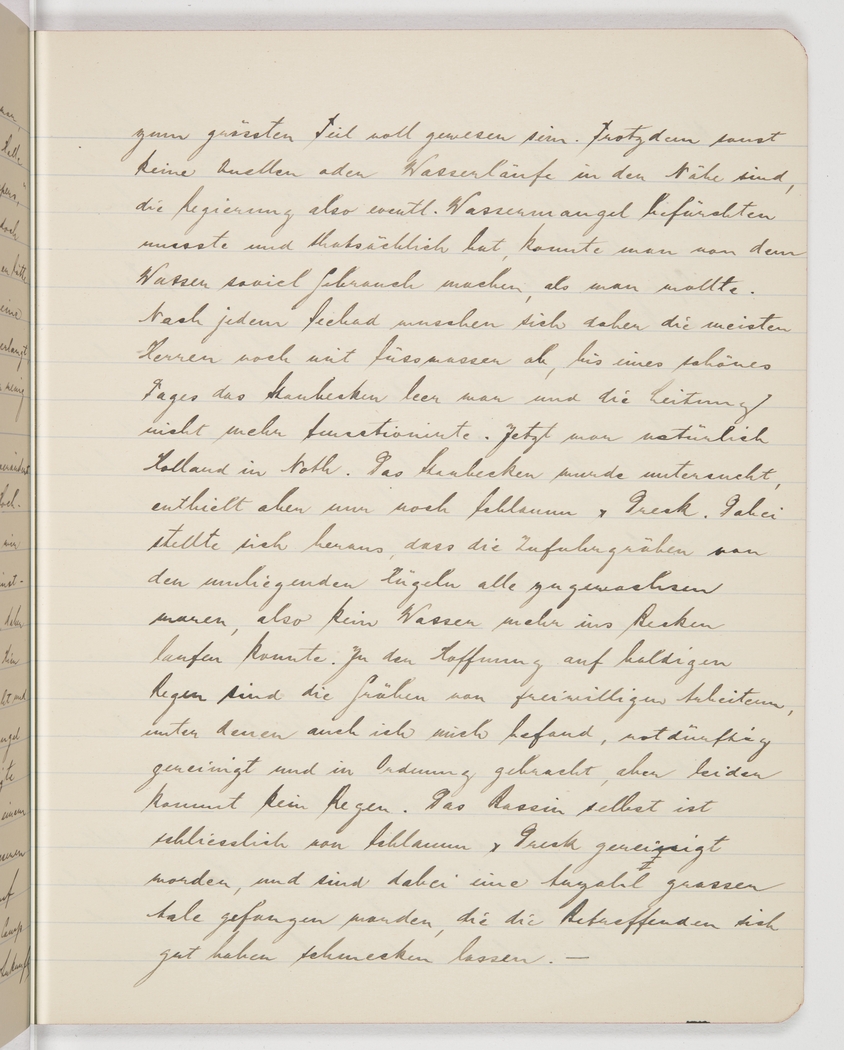 zum grössten Teil voll gewesen sein. Trotzdem sonst
keine Quellen oder Wasserläufe in der Nähe sind,
die Regierung also eventl. Wassermangel befürchten
musste und thatsächlich hat, konnte man von dem
Wasser soviel Gebrauch machen, als man wollte.
Nach jedem Seebad wuschen sich daher die meisten
Herren noch mit Süsswasser ab, bis eines schönes
Tages das Staubecken leer war und die Leitung
nicht mehr functionierte. Jetzt war natürlich
Holland in Noth. Das Staubecken wurde untersucht,
enthielt aber nur noch Schlamm & Dreck. Dabei
stellte sich heraus, dass die Zufuhrgräben von
den umliegenden Hügeln alle zugewachsen
waren, also kein Wasser mehr ins Becken
laufen konnte. In der Hoffnung auf baldigen
Regen sind die Gräben von freiwilligen Arbeitern,
unter denen auch ich mich befand, notdürftig
gereinigt und in Ordnung gebracht, aber leider
kommt kein Regen. Das Bassin selbst ist
schliesslich von Schlamm & Dreck gereinigt
worden, und sind dabei eine Anzahl grosser
Aale gefangen worden, die die Betreffenden sich
gut haben schmecken lassen. —